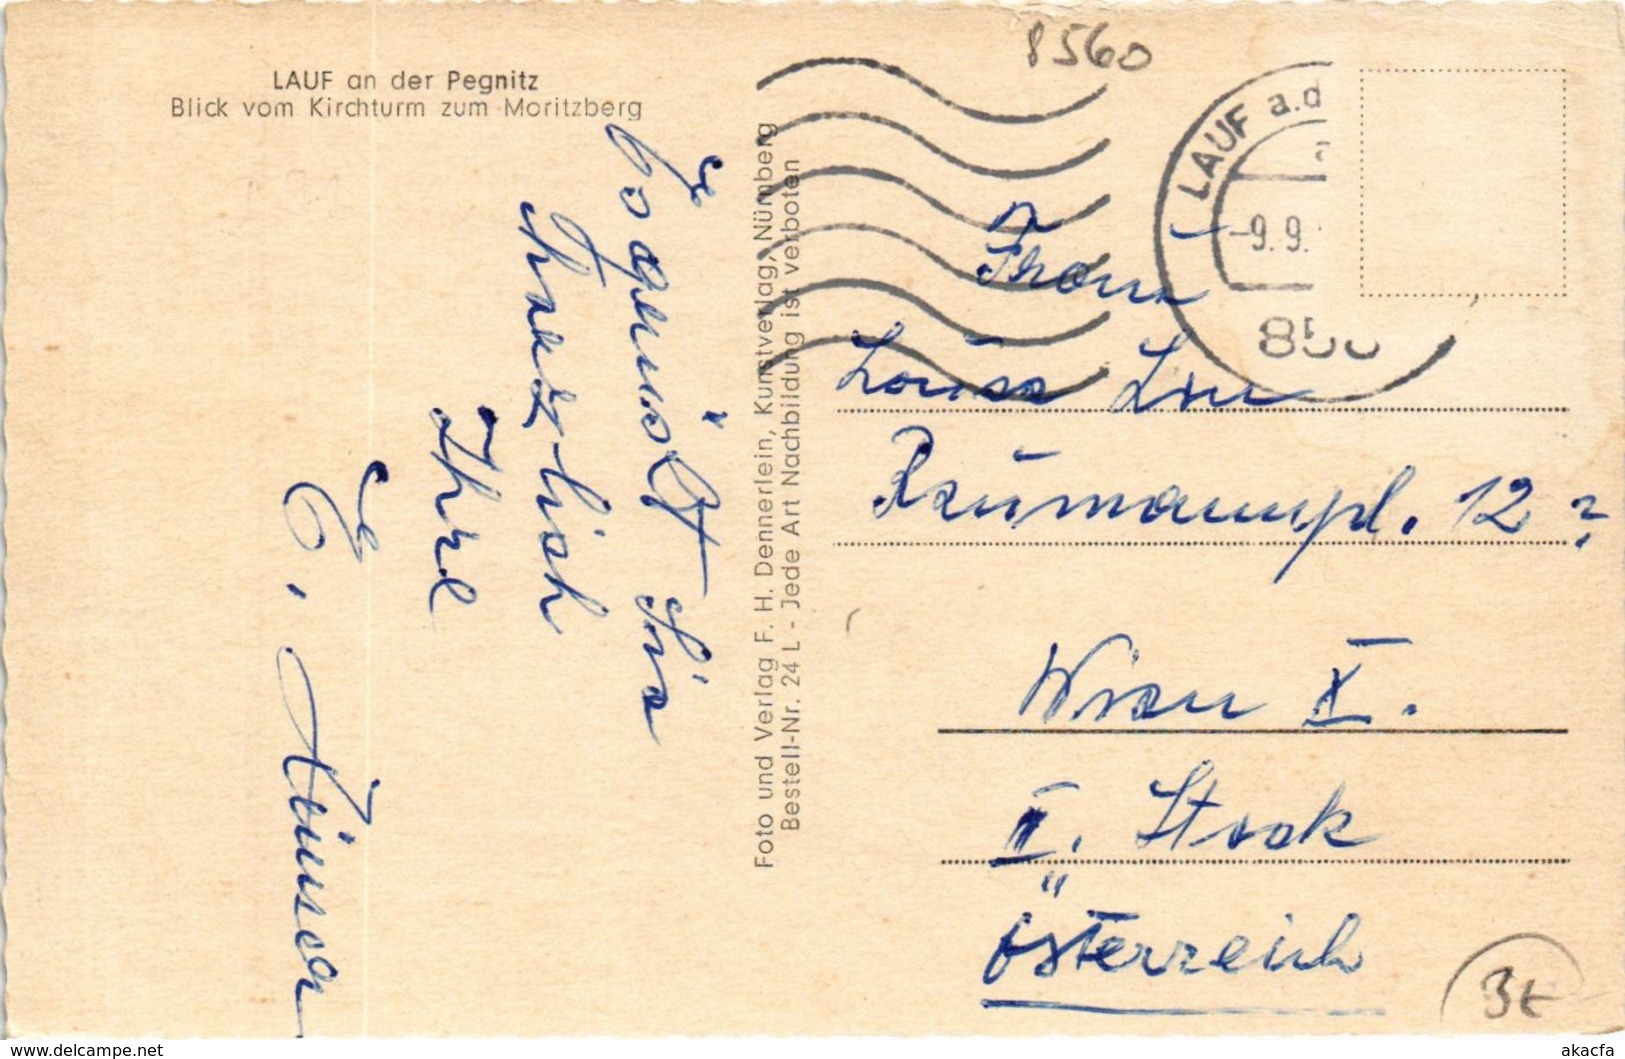 LAUF an der Pegnitz
Blick vom Kirchturm zum Moritzberg
Es
begrüßt Sie
herzlich
Ihre
E.
Foto und Verlag F. H. Dennerlein, Kunstverlag, Nürnberg
Bestell-Nr. 24 L - Jede Art Nachbildung ist verboten
8560
LAUF a.d
-9.9.
85
Frau
Louise
12
Wien X.
II. Stock
Österreich
3t
akacfa
www.delcampe.net